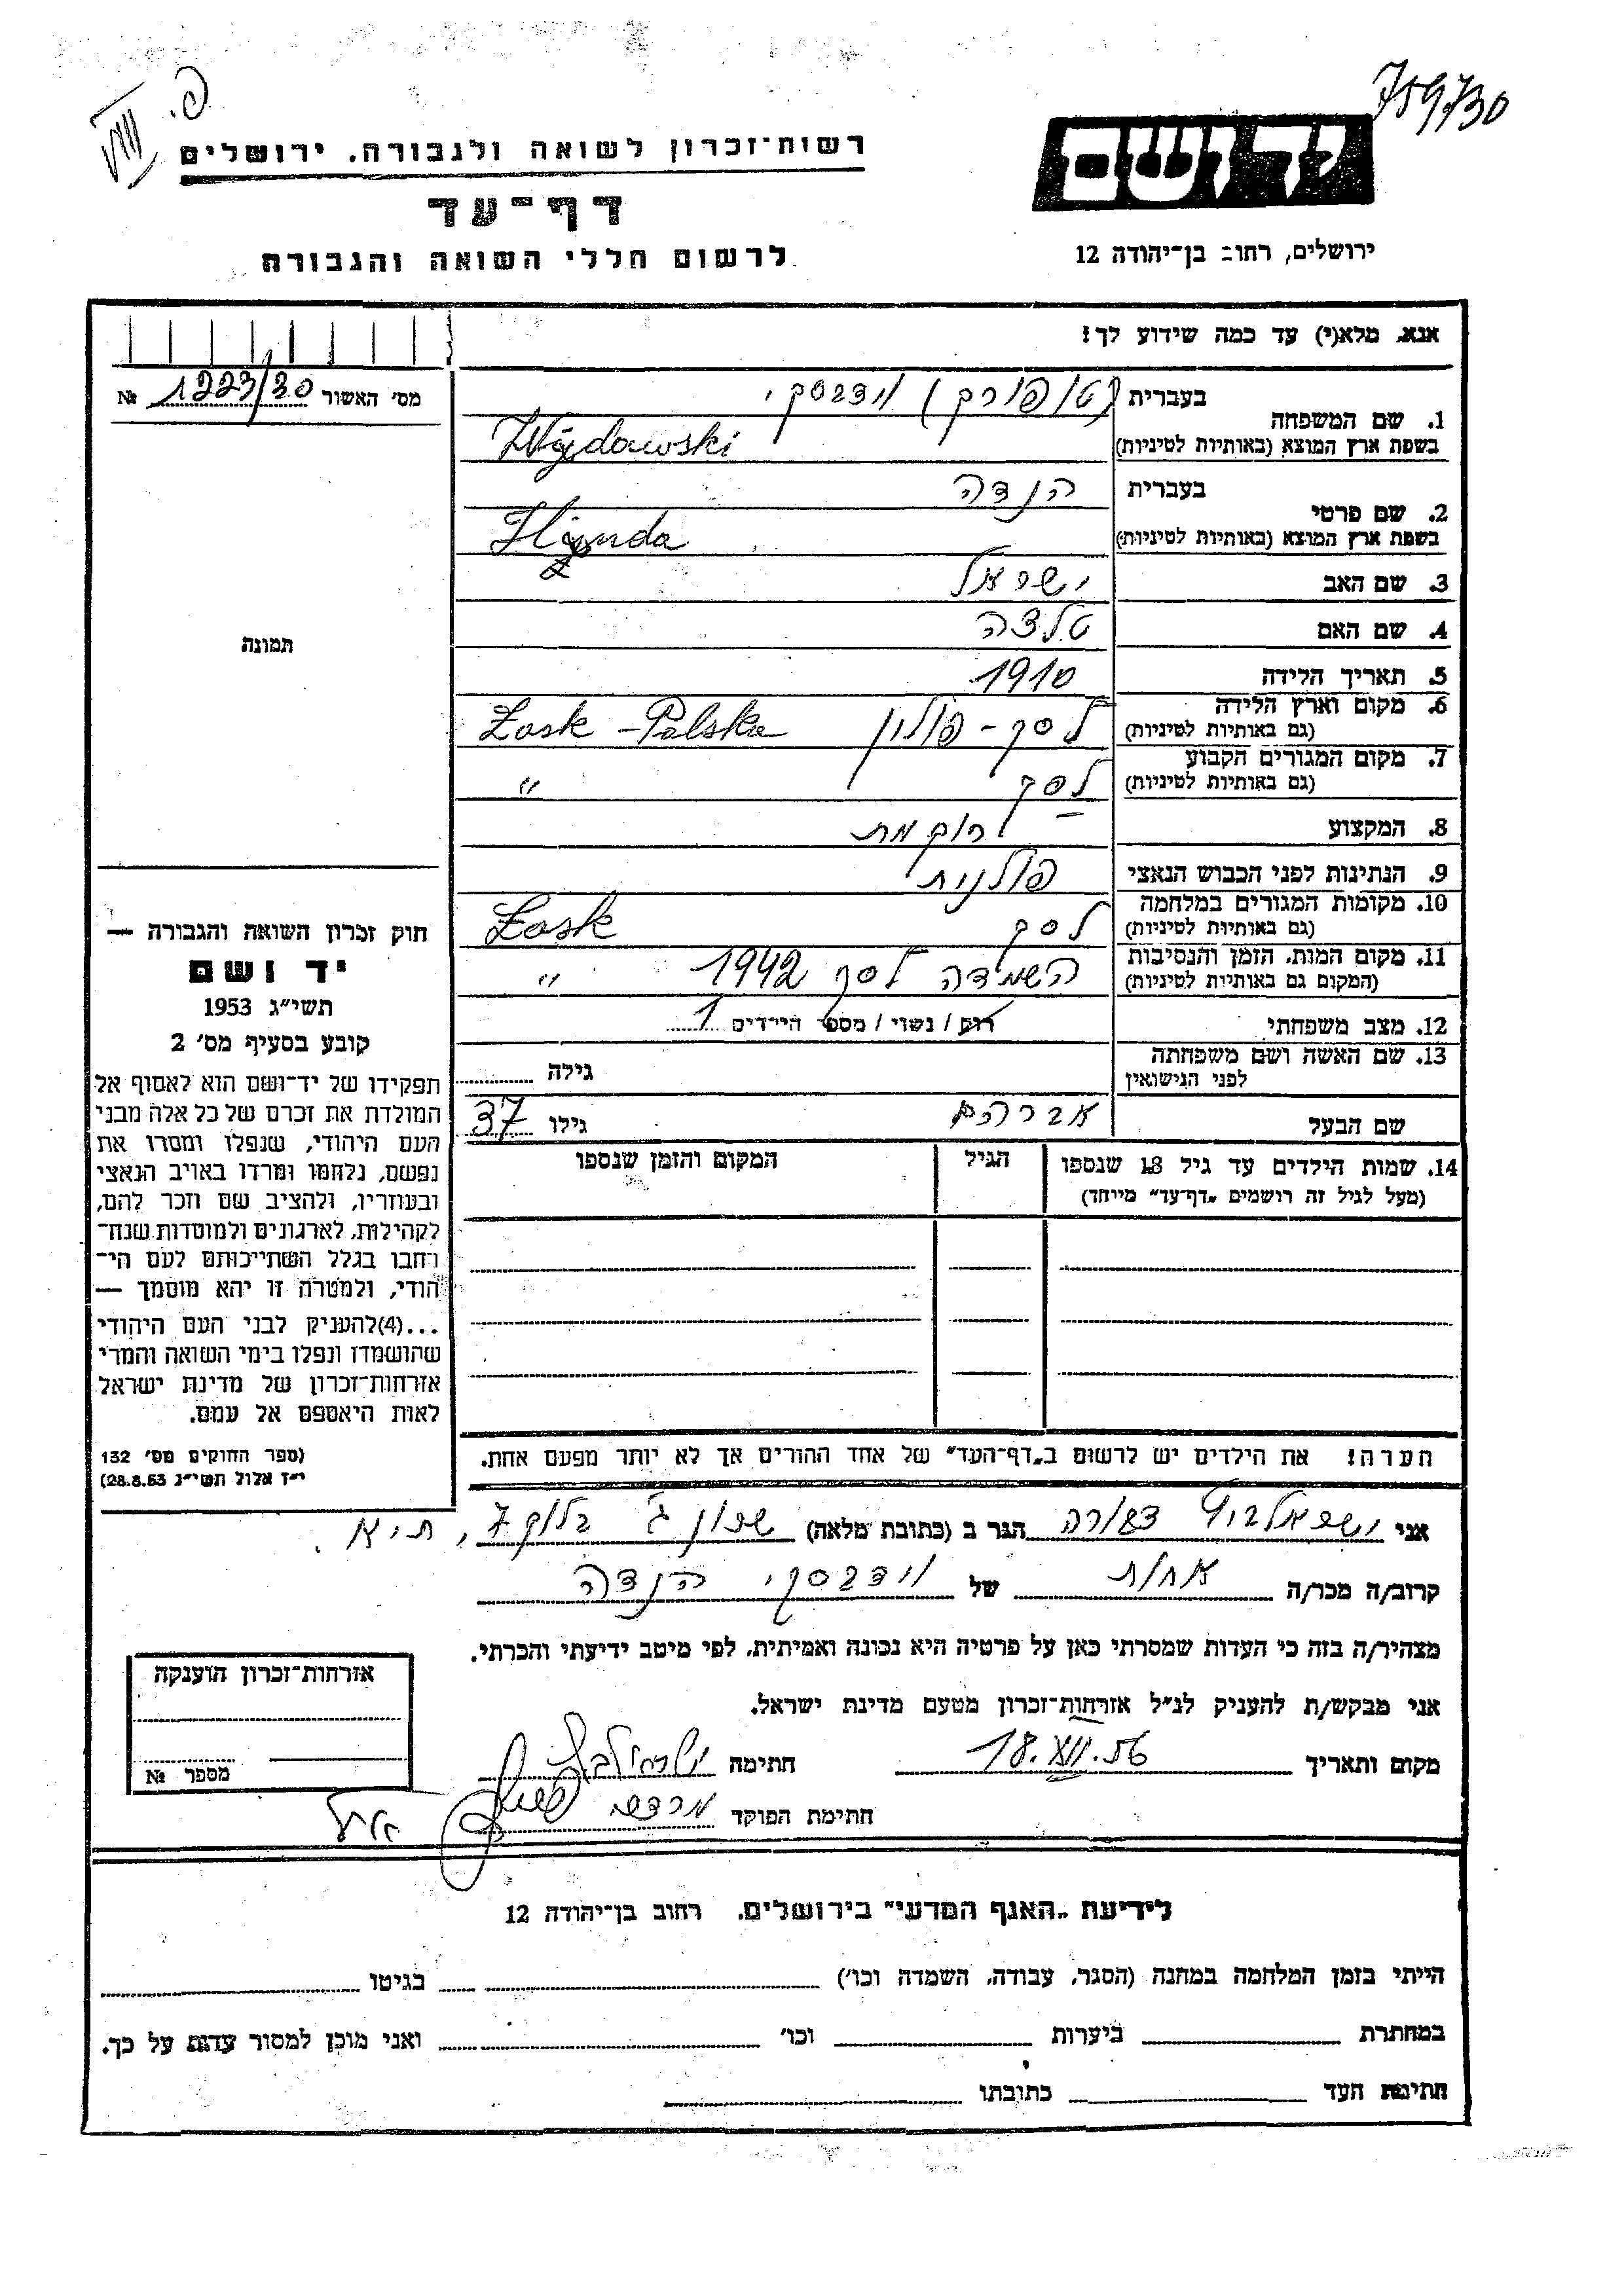 759730
פ.
יד ושם
רשות־זכרון לשואה ולגבורה. ירושלים
דף־עד
לרשום חללי השואה והגבורה
ירושלים, רחוב בן־יהודה 12
אנא. מלא(י) עד כמה שידוע לך!
מס׳ האשור 1223/30 №
1. שם המשפחה
בעברית (טופורק) וידבסקי
בשפת ארץ המוצא (באותיות לטיניות) Wajdowski
2. שם פרטי
בעברית הנדה
בשפת ארץ המוצא (באותיות לטיניות) Hynda
3. שם האב ישראל
4. שם האם טלצה
תמונה
5. תאריך הלידה 1910
6. מקום וארץ הלידה לסק - פולין Łask - Polska
(גם באותיות לטיניות)
7. מקום המגורים הקבוע לסק "
(גם באותיות לטיניות)
8. המקצוע רוקמת
9. הנתינות לפני הכבוש הנאצי פולנית
10. מקומות המגורים במלחמה לסק Łask
(גם באותיות לטיניות)
11. מקום המות. הזמן והנסיבות השמדה לסק 1942 "
(המקום גם באותיות לטיניות)
12. מצב משפחתי רוק / נשוי / מספר הילדים 1
13. שם האשה ושם משפחתה גילה
לפני הנישואין
שם הבעל אברהם גילו 37
14. שמות הילדים עד גיל 18 שנספו הגיל המקום והזמן שנספו
(מעל לגיל זה רושמים „דף־עד" מיוחד)
חוק זכרון השואה והגבורה —
יד ושם
תשי״ג 1953
קובע בסעיף מס׳ 2
תפקידו של יד־ושם הוא לאסוף אל
המולדת את זכרם של כל אלה מבני
העם היהודי, שנפלו ומסרו את
נפשם, נלחמו ומרדו באויב הנאצי
ובעוזריו, ולהציב שם וזכר להם,
לקהילות, לארגונים ולמוסדות שנח־
רחבו בגלל השתייכותם לעם הי־
הודי, ולמטרה זו יהא מוסמך —
...(4)להעניק לבני העם היהודי
שהושמדו ונפלו בימי השואה והמרי
אזרחות־זכרון של מדינת ישראל
לאות היאספם אל עמם.
(ספר החוקים מס׳ 132
י״ז אלול תשי״ג 28.8.53)
הערה! את הילדים יש לרשום ב„דף־העד" של אחד ההורים אך לא יותר מפעם אחת.
אני ישראלביץ דבורה הגר ב (כתובת מלאה) שכון ג׳ בלוק 7, ת״א.
קרוב/ה מכר/ה אחות של וידבסקי הנדה
מצהיר/ה בזה כי העדות שמסרתי כאן על פרטיה היא נכונה ואמיתית. לפי מיטב ידיעתי והכרתי.
אני מבקש/ת להעניק לנ״ל אזרחות־זכרון מטעם מדינת ישראל.
מקום ותאריך 18.XII.56 חתימה
חתימת הפוקד מרדכי
אזרחות־זכרון הוענקה
מספר №
לידיעת „האגף המדעי" בירושלים. רחוב בן־יהודה 12
הייתי בזמן המלחמה במחנה (הסגר, עבודה, השמדה וכו׳) בגיטו
במחתרת ביערות וכו׳ ואני מוכן למסור עדות על כך.
חתימת העד כתובתו